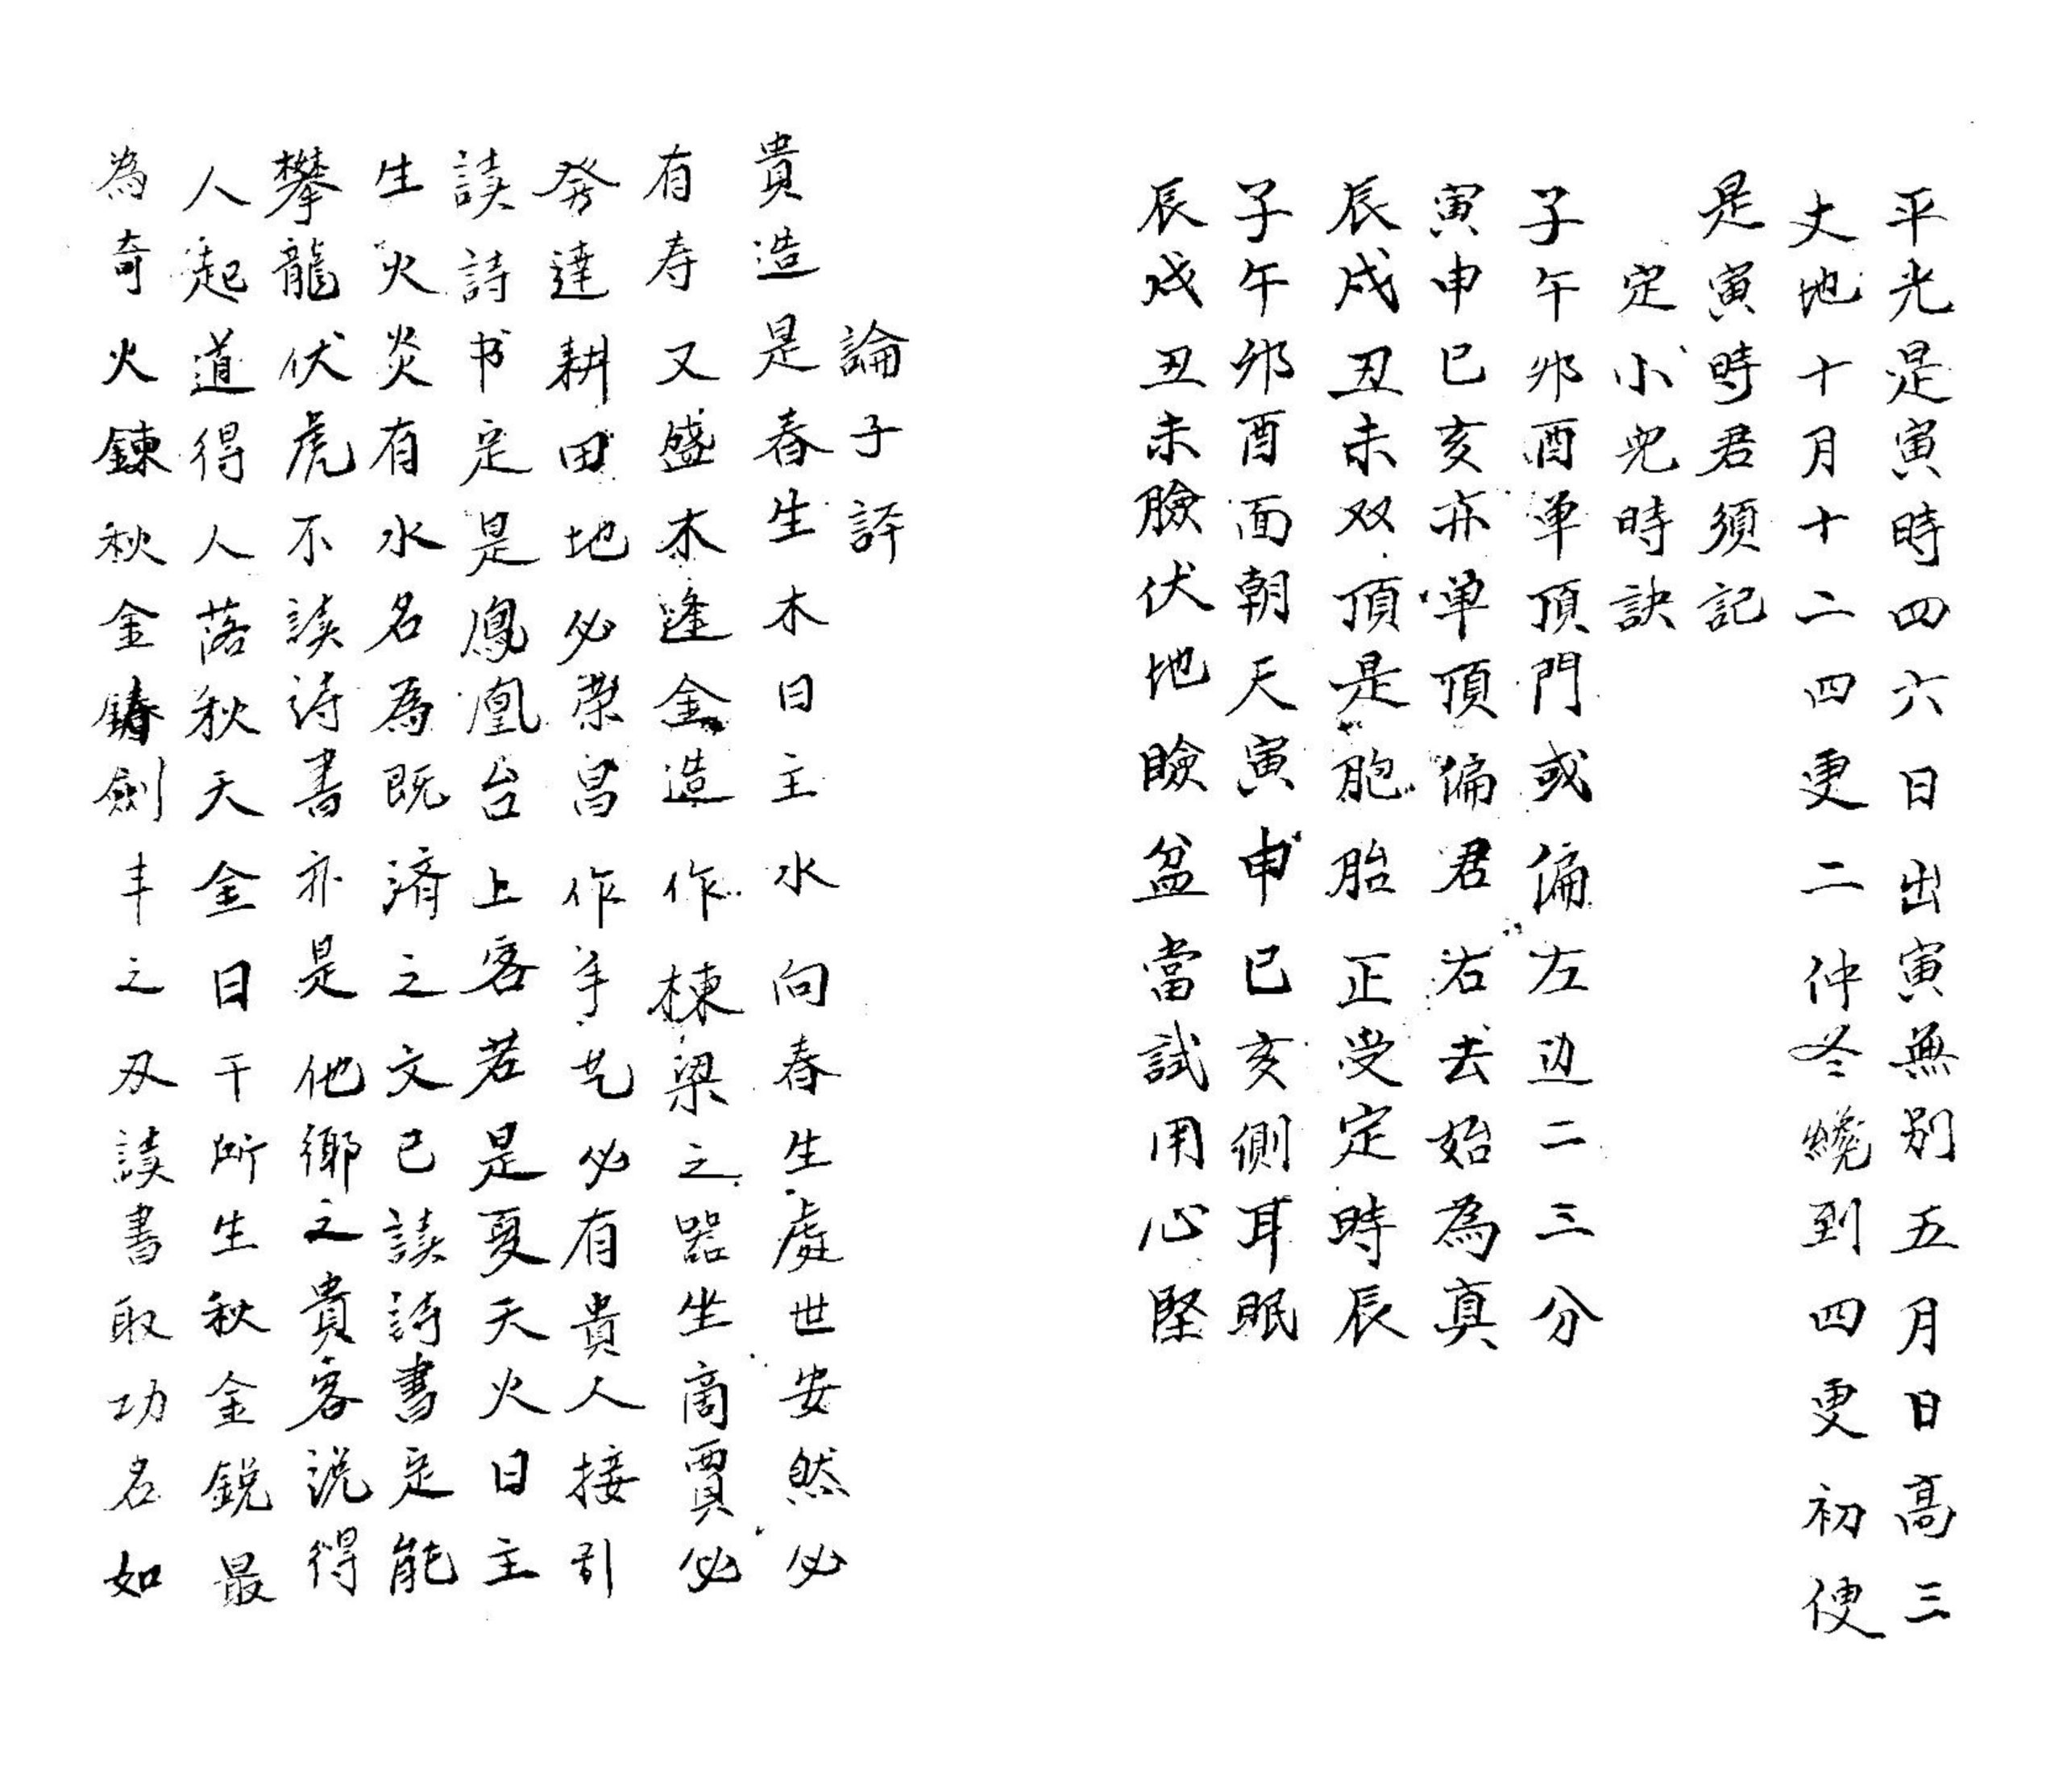 平光是寅時四六日出寅無别五月日高三
丈地十月十二四更二仲冬纔到四更初便
是寅時君須記
定小児時訣
子午夘酉单頂門或偏左边二三分
寅申巳亥亦单頂偏君右去始為真
辰戌丑未双頂是胞胎正受定時辰
子午夘酉面朝天寅申巳亥側耳眠
辰戌丑未臉伏地瞼盆當試用心堅
論子評
貴造是春生木日主水向春生處世安然必
有寿又盛木逢金造作棟梁之器坐商賈必
発達耕田地必荣昌作手艺必有貴人接引
讀詩书定是鳳凰台上客若是夏天火日主
生火炎有水名為既濟之文已讀詩書定能
攀龍伏虎不讀詩書亦是他鄉之貴客説得
人起道得人落秋天金日干所生秋金鋭最
為奇火鍊秋金鑄劍丰之刄讀書取功名如